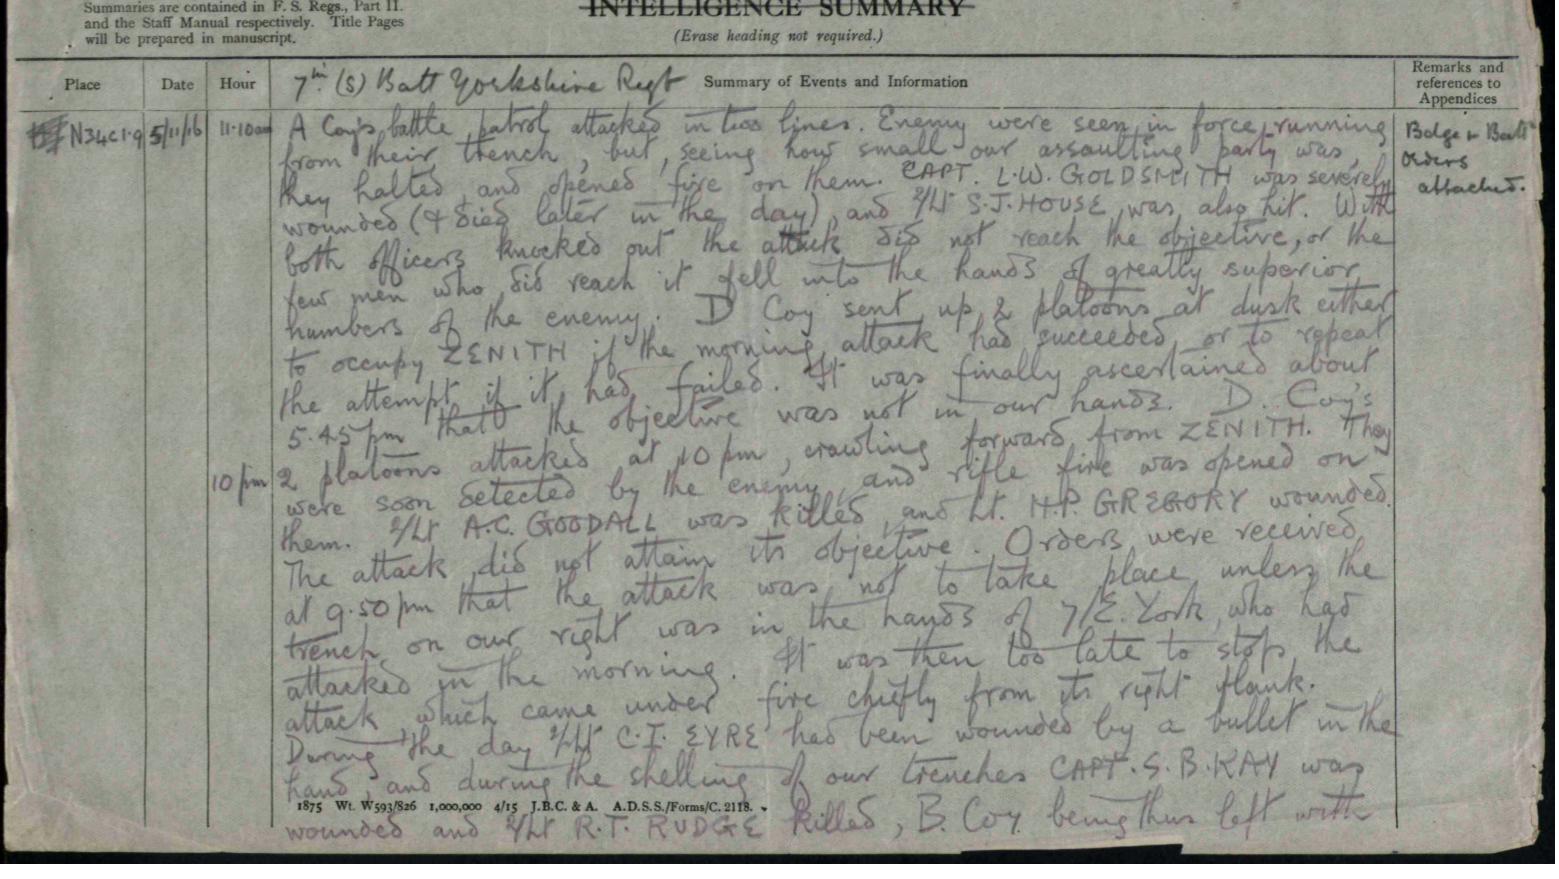 Summaries are contained in F. S. Regs., Part II.
and the Staff Manual respectively. Title Pages
will be prepared in manuscript.
INTELLIGENCE SUMMARY
(Erase heading not required.)
Place
Date
Hour
7th (S) Batt Yorkshire Regt
Summary of Events and Information
Remarks and
references to
Appendices
N34c1.9 5/11/16 11.10am A Coy's battle patrol attacked in two lines. Enemy were seen in force running
from their trench, but, seeing how small our assaulting party was,
they halted and opened fire on them. CAPT. L.W. GOLDSMITH was severely
wounded (& died later in the day), and 2/Lt S.J. HOUSE was also hit. With
both officers knocked out the attack did not reach the objective, or the
few men who did reach it fell into the hands of greatly superior
numbers of the enemy. D Coy sent up 2 platoons at dusk either
to occupy ZENITH if the morning attack had succeeded or to repeat
the attempt if it had failed. It was finally ascertained about
5.45pm that the objective was not in our hands. D. Coy's
10pm 2 platoons attacked at 10pm, crawling forward from ZENITH. They
were soon detected by the enemy and rifle fire was opened on
them. 2/Lt A.C. GOODALL was killed, and Lt. H.P. GREGORY wounded.
The attack did not attain its objective. Orders were received
at 9.50pm that the attack was not to take place unless the
trench on our right was in the hands of 7/E. York, who had
attacked in the morning. It was then too late to stop the
attack, which came under fire chiefly from its right flank.
During the day 2/Lt C.I. EYRE had been wounded by a bullet in the
hand, and during the shelling of our trenches CAPT. S.B. KAY was
1875 Wt. W593/826 1,000,000 4/15 J.B.C. & A. A.D.S.S./Forms/C. 2118.
wounded and 2/Lt R.T. RUDGE killed, B. Coy being thus left with
Bdge & Batt
Orders
attached.